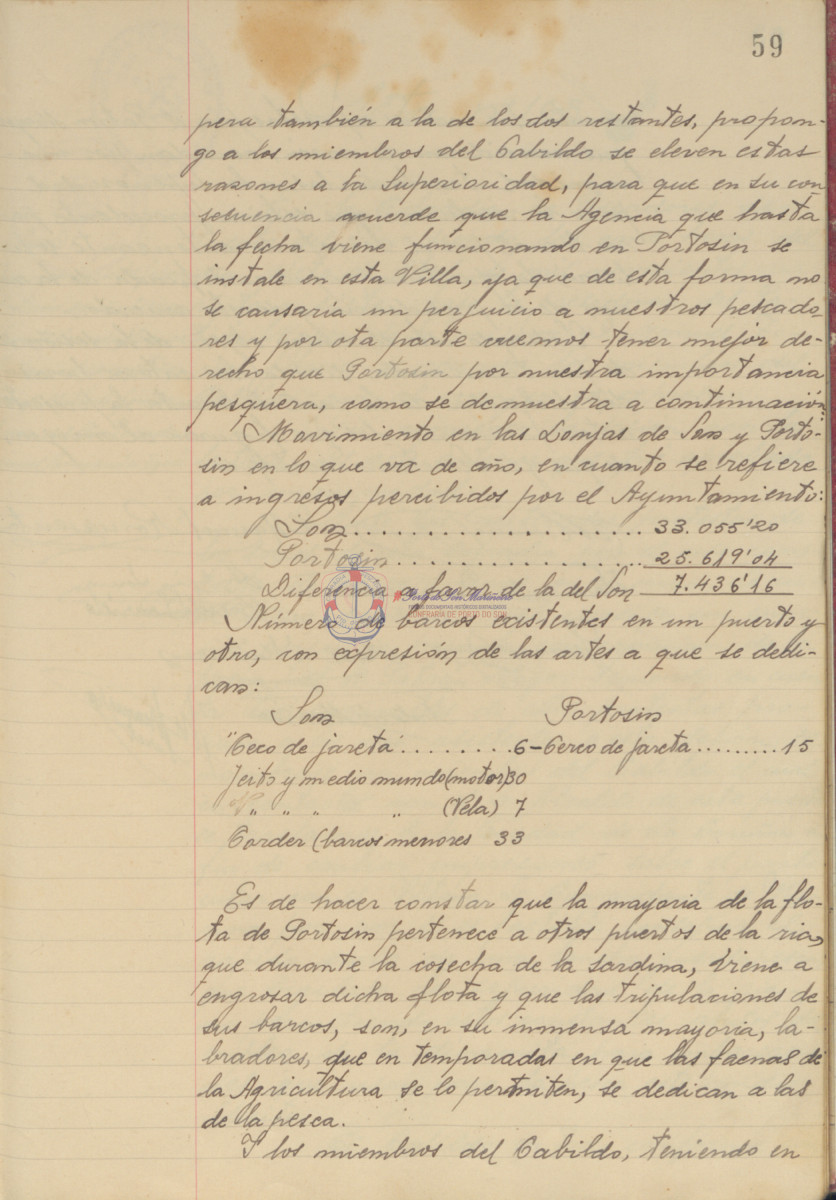 59
pera también a la de los dos restantes, propon-
go a los miembros del Cabildo se eleven estas
razones a la Superioridad, para que en su con
secuencia acuerde que la Agencia que hasta
la fecha viene funcionando en Portosin se
instale en esta Villa, ya que de esta forma no
se causaría un perjuicio a nuestros pescado
res y por ota parte creemos tener mejor de-
recho que Portosin por nuestra importancia
pesquera, como se demuestra a continuación:
Movimiento en las Lonjas de Son y Porto-
sin en lo que va de año, en cuanto se refiere
a ingresos percibidos por el Ayuntamiento:
Son..................... 33.055'20
Portosin.................. 25.619'04
Diferencia a favor de la del Son 7.436'16
Número de barcos existentes en un puerto y
otro, con expresión de las artes a que se dedi-
can:
Son Portosin
"Ceco de jareta.........6-Cerco de jareta.........15
Jeito y medio mundo (motor) 30
" " " " (Vela) 7
Corder (barcos menores 33
Es de hacer constar que la mayoria de la flo-
ta de Portosin pertenece a otros puertos de la ria,
que durante la cosecha de la sardina, viene a
engrosar dicha flota y que las tripulaciones de
sus barcos, son, en su inmensa mayoria, la-
bradores, que en temporadas en que las faenas de
la Agricultura se lo permiten, se dedican a las
de la pesca.
Y los miembros del Cabildo, teniendo en